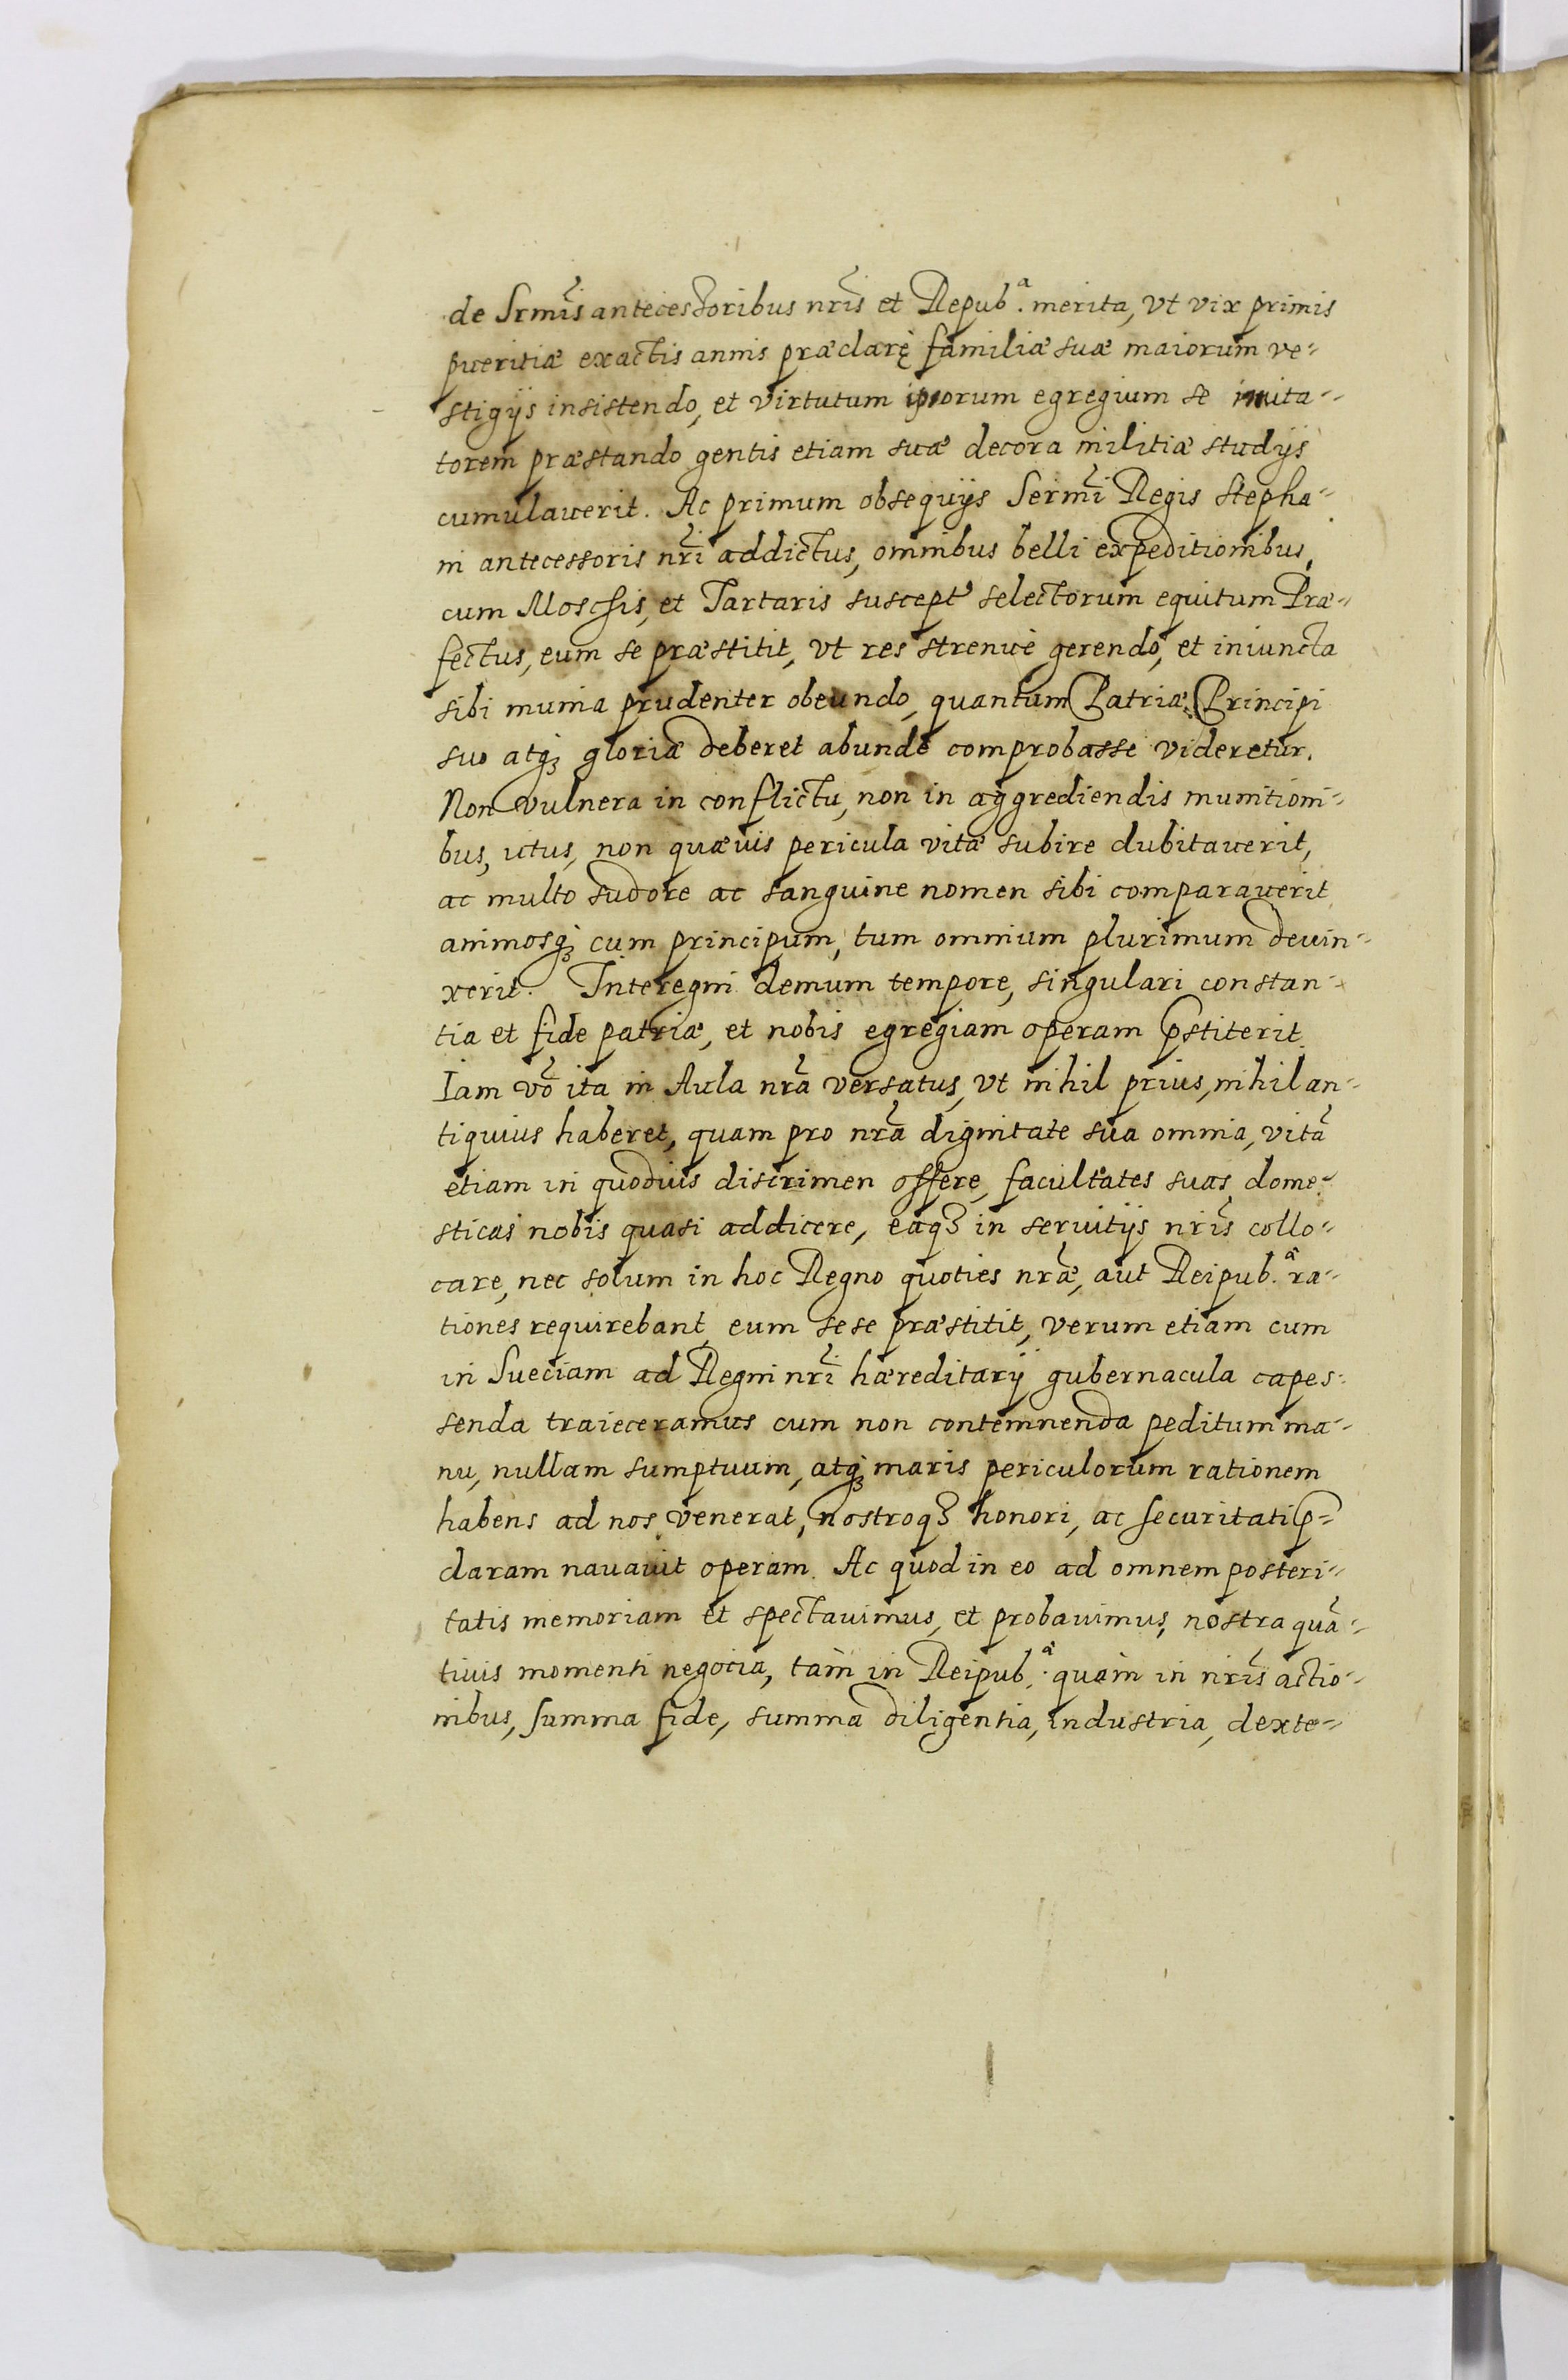 de Srmis antecessoribus nris et Repub.ᵃ merita, vt vix primis
pueritiæ exactis annis præclarę familiæ suæ maiorum ve=
stigijs insistendo, et virtutum ipsorum egregium se imita=
torem præstando gentis etiam suæ decora militiæ studijs
cumulauerit. Ac primum obsequijs Sermi Regis Stepha=
ni antecessoris nri addictus, omnibus belli expeditionibus,
cum Moschis, et Tartaris suscept' selectorum equitum Præ=
fectus, eum se præstitit, vt res strenuè gerendo, et iniuncta
sibi munia prudenter obeundo, quantum Patriæ, Principi
suo atq; gloriæ deberet abundè comprobasse videretur.
Non vulnera in conflictu, non in aggrediendis munitioni=
bus, ictus, non quæuis pericula vitæ subire dubitauerit,
ac multo sudore ac sanguine nomen sibi comparauerit
animosq; cum principum, tum omnium plurimum deuin=
xerit. Interegni demum tempore, singulari constan=
tia et fide patriæ, et nobis egregiam operam pstiterit.
Iam vō ita in Aula nrā versatus, vt nihil prius, nihil an=
tiquius haberet, quam pro nrā dignitate sua omnia, vitā
etiam in quoduis discrimen offere, facultates suas dome=
sticas nobis quasi addicere, eaq3 in seruitijs nris collo=
care, nec solum in hoc Regno quoties nræ, aut Reipub.ᵃ ra=
tiones requirebant, eum sese præstitit, verum etiam cum
in Sueciam ad Regni nri hæreditarij gubernacula capes=
senda traieceramus cum non contemnenda peditum ma=
nu, nullam sumptuum, atq; maris periculorum rationem
habens ad nos venerat, nostroq3 honori, ac securitati p=
claram nauauit operam. Ac quod in eo ad omnem posteri=
tatis memoriam et spectauimus, et probauimus, nostra quā=
tiuis momenti negocia, tàm in Reipub.ᵃ quàm in nris actio=
nibus, summa fide, summa diligentia, industria, dexte=